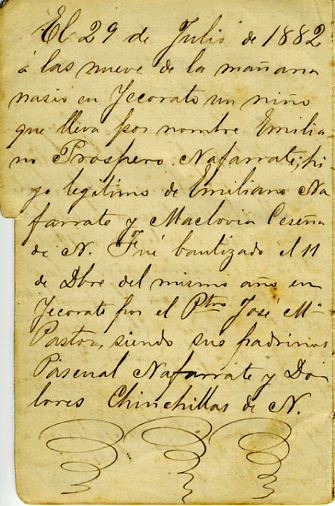 El 29 de Julio de 1882
á las nueve de la mañana
nasió en Jecorato un niño
que lleva por nombre Emilia
no Prospero Nafarrate; hi
jo legítimo de Emiliano Na
farrate y Maclovia Ceseña
de N. Fué bautizado el 11
de Dbre del mismo año en
Jecorato por el Pbro José Ma
Pastor, siendo sus padrinos
Pascual Nafarrate y Do
lores Chinchillas de N.